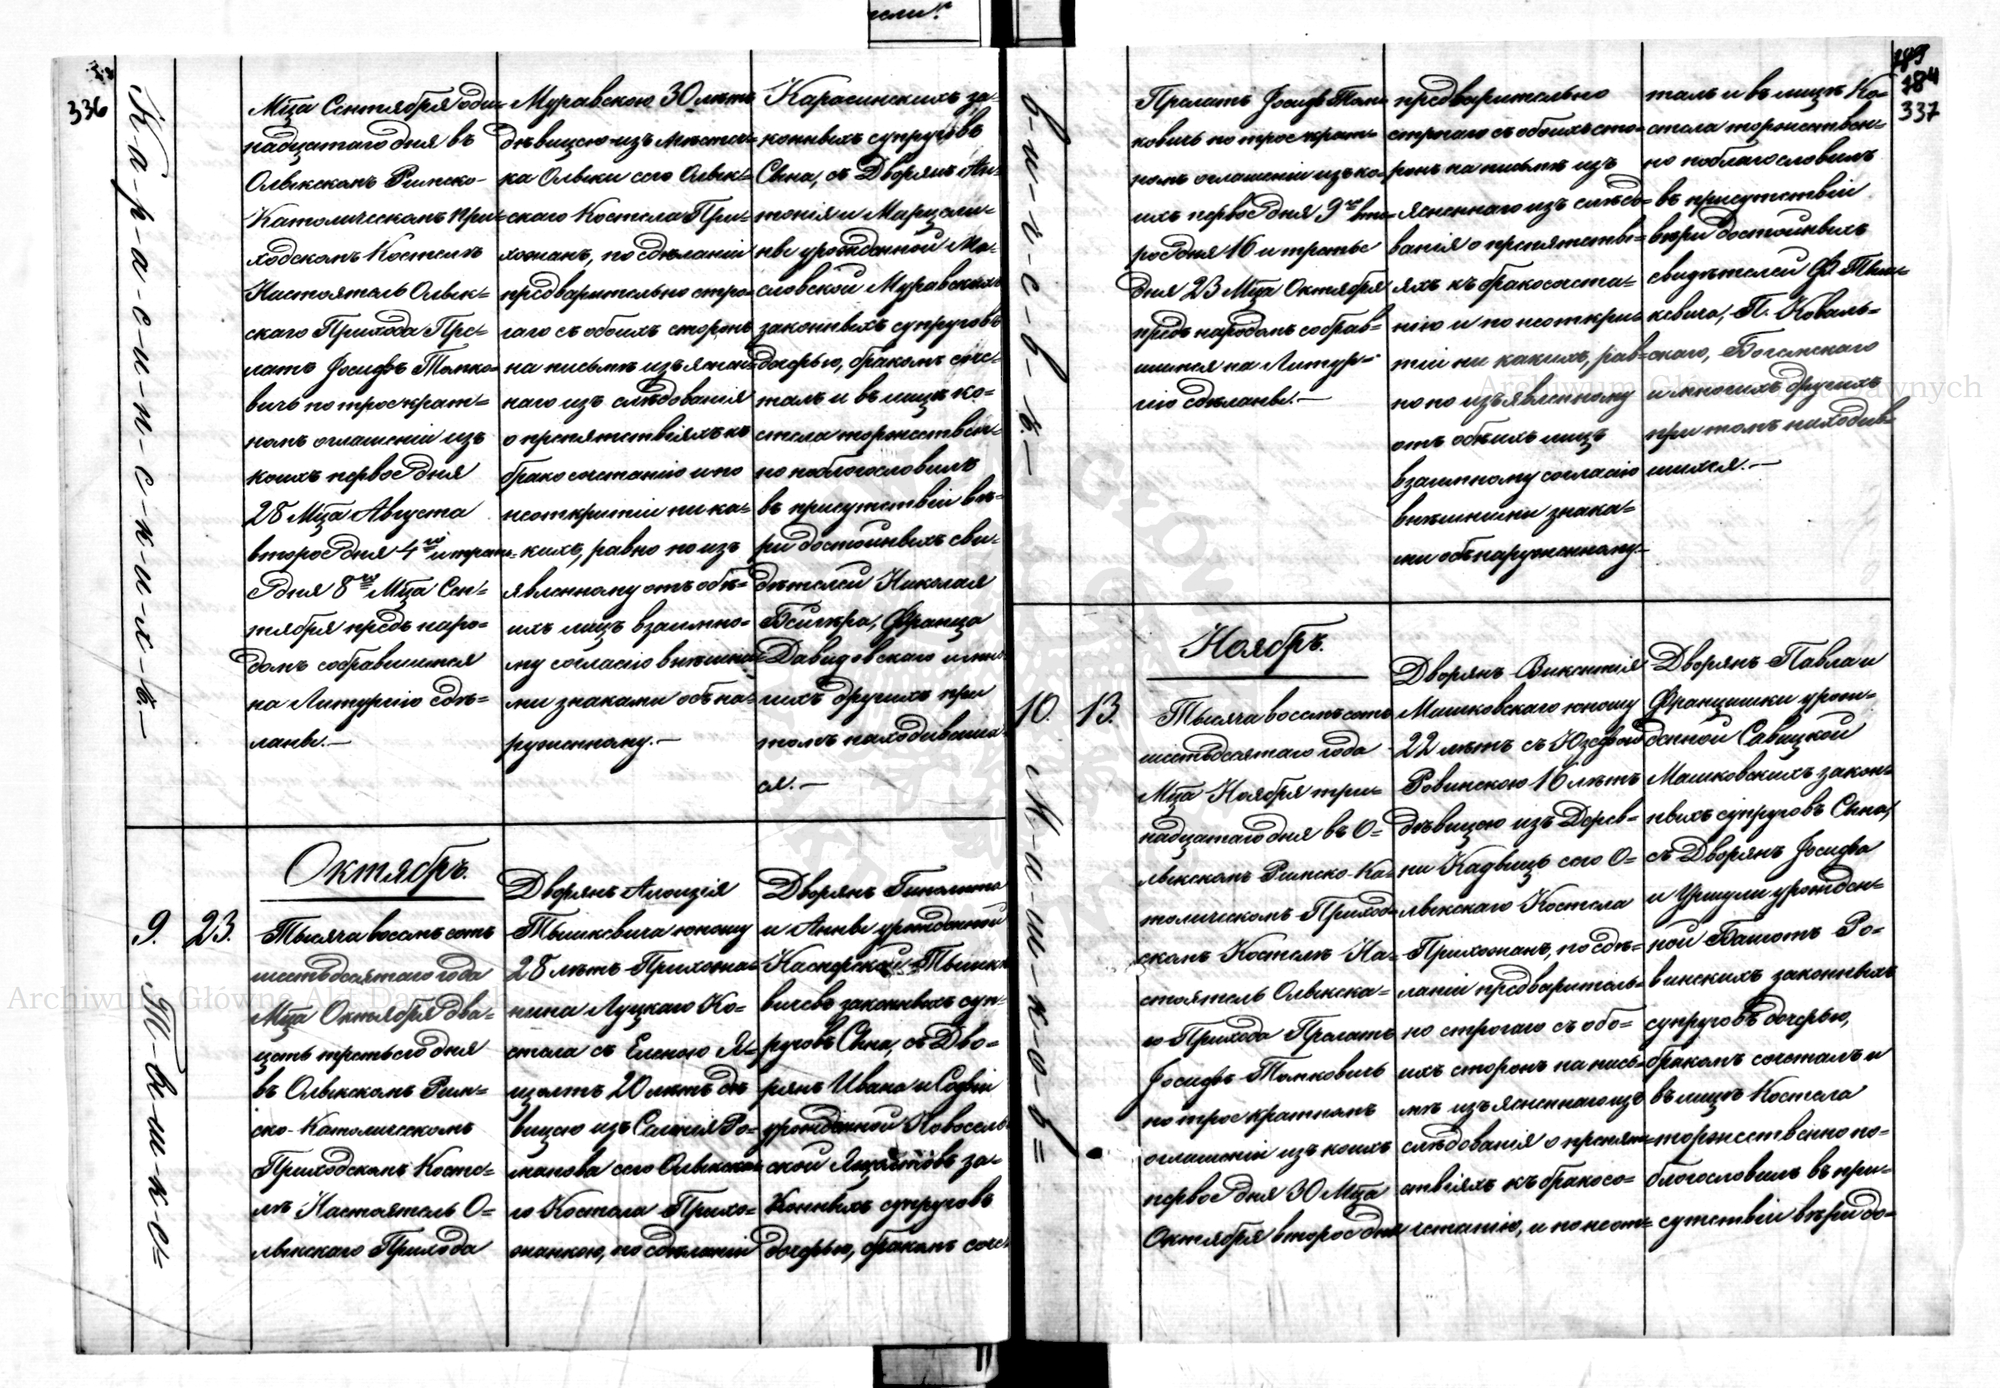 336
К-а-р-а-с-и-н-с-к-и-х-ъ.—
Мца Сентября оди-
надцатаго дня въ
Олыкскомъ Римско-
Католическомъ При-
ходскомъ Костелѣ
Настоятель Олык-
скаго Прихода Пре-
латъ Іосифъ Томко-
вичъ по троекрат-
номъ оглашеніи изъ
коихъ первое дня
28 Мца Августа
второе дня 4го и трет-
е дня 8го Мца Сен-
тября предъ наро-
домъ собравшимся
на Литургію сдѣ-
ланы.—
Муравскою 30 лѣтъ
дѣвицею изъ Мѣстеч-
ка Олыки сего Олык-
скаго Костела При-
хожанъ, по сдѣланіи
предварительно стро-
гаго съ обоихъ сторонъ
на письмѣ изъяснен-
наго изъ слѣдованія
о препятствіяхъ къ
бракосочетанію и по
неоткрытіи ни ка-
кихъ, равно по изъ
явленному отъ обѣ-
ихъ лицъ взаимно-
му согласію внѣшни-
ми знаками обна-
руженному.—
Карасинскихъ за-
конныхъ супруговъ
Сына, съ Дворянъ Ан-
тонія и Марцели-
ны урожденной Ма-
словской Муравскихъ
законныхъ супруговъ
дочерью, бракомъ соче-
талъ и въ лицѣ ко-
стела торжествен-
но поблагословилъ
въ присутствіи вѣ-
ри достойныхъ сви-
дѣтелей Николая
Франца
Давидовскаго и мно-
гихъ другихъ при
томъ находивших
ся.—
9.
23.
Т-ы-ш-к-е=
Октябрь.
Тысяча восемъ сотъ
шестьдесятаго года
Мца Октября два-
цать третьего дня
въ Олыкскомъ Рим-
ско-Католическомъ
Приходскомъ Косте-
лѣ Настоятель О-
лыкскаго Прихода
Дворянъ Алоизія
Тышкевича юношу
28 лѣтъ Прихожа-
нина Луцкаго Ко-
стела съ Еленою Я-
цалтъ 20 лѣтъ дѣ
вицею изъ Селенія Ро-
манова сего Олыкска-
го Костела Прихо-
жанкою, по сдѣланіи
Дворянъ Гиполита
и Анны урожденной
Касперской Тышке
вичевъ законныхъ суп-
руговъ Сына, съ Дво-
рянъ Ивана и Софіи
урожденной Новосель-
ской Яцалтовъ за-
конныхъ супруговъ
дочерью, бракомъ соче-
189
184
337
в-и-ч-е-в-ъ.—
Прелатъ Іосифъ Том-
ковичъ по троекрат-
номъ оглашеніи изъ ко-
ихъ первое дня 9го вто-
рое дня 16 и третье
дня 23 Мца Октября
предъ народомъ собрав-
шимся на Литур-
гію сдѣланы.—
предварительно
строгаго съ обоихъ сто-
ронъ на письмѣ изъ
ясненнаго изъ слѣдо-
ванія о препятстві-
яхъ къ бракосочета-
нію и по неоткры-
тіи ни какихъ, рав-
но по изъявленному
отъ обѣихъ лицъ
взаимному согласію
внѣшними знака-
ми обнаруженному.—
талъ и въ лицѣ Ко-
стела торжествен-
но поблагословилъ
въ присутствіи
вѣри достойныхъ
свидѣтелей Ф. Тыш-
кевича, П. Коваль-
скаго,
и многихъ другихъ
при томъ находив-
шихся.—
10.
13.
М-а-ш-к-о-в=
Ноябрь.
Тысяча восемъ сотъ
шестьдесятаго года
Мца Ноября три-
надцатаго дня въ О-
лыкскомъ Римско-Ка-
толическомъ Приход-
скомъ Костелѣ На-
стоятель Олыкска-
го Прихода Прелатъ
Іосифъ Томковичъ
по троекратномъ
оглашеніи изъ коихъ
первое дня 30 Мца
Октября второе дня
Дворянъ Викентія
Машковскаго юношу
22 лѣтъ съ Юзефою
Ровинскою 16 лѣтъ
дѣвицею изъ Дерев-
ни Кадвищъ сего О-
лыкскаго Костела
Прихожанъ, по сдѣ-
ланіи предваритель-
но строгаго съ обо-
ихъ сторонъ на пись-
мѣ изъясненнаго изъ
слѣдованія о препят-
ствіяхъ къ бракосо-
четанію, и по неот-
Дворянъ Павла и
Францишки урож-
денной Савицкой
Машковскихъ закон-
ныхъ супруговъ Сына,
съ Дворянъ Іосифа
и Уршули урожден-
ной Башотъ Ро-
винскихъ законныхъ
супруговъ дочерью,
бракомъ сочеталъ и
въ лицѣ Костела
торжественно по-
благословилъ въ при-
сутствіи вѣри до-
Archiwum Główne Akt Dawnych
Archiwum Główne Akt Dawnych